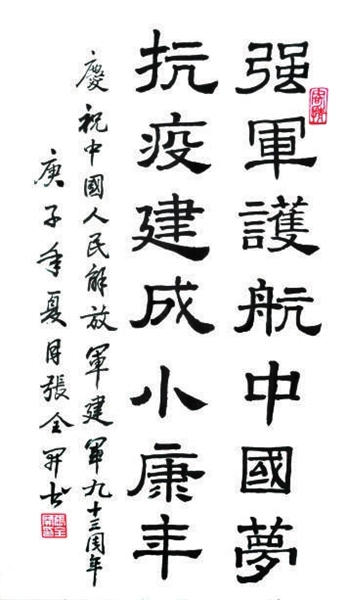 强軍護航中國夢
抗疫建成小康年
慶祝中國人民解放軍建軍九十三周年
庚子年夏月張全书